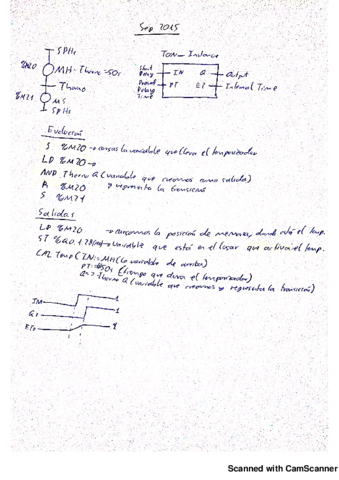 Sep 2015
SPHs
%M20 MH-Thorno=50s
Thorno
%M21 MS
SPHs
TON_Instance
Start Relay IN Q Output
Preset Delay Time PT ET Internal Time
Evolución
S %M20 → cargas la variable que lleva el temporizador
LD %M20 →
AND Thorno Q (variable que creamos como salida)
R %M20 → representa la transición
S %M21
Salidas
LD %M20 → cargamos la posición de memoria donde está el temp.
ST → variable que está en el lugar que activa el temp.
CAL Tmp (IN:=MH (la variable de arriba)
PT:= (tiempo que dura el temporizador)
Q=> Thorno Q (variable que creamos y representa la transición)
IN
Q
ET
Scanned with CamScanner